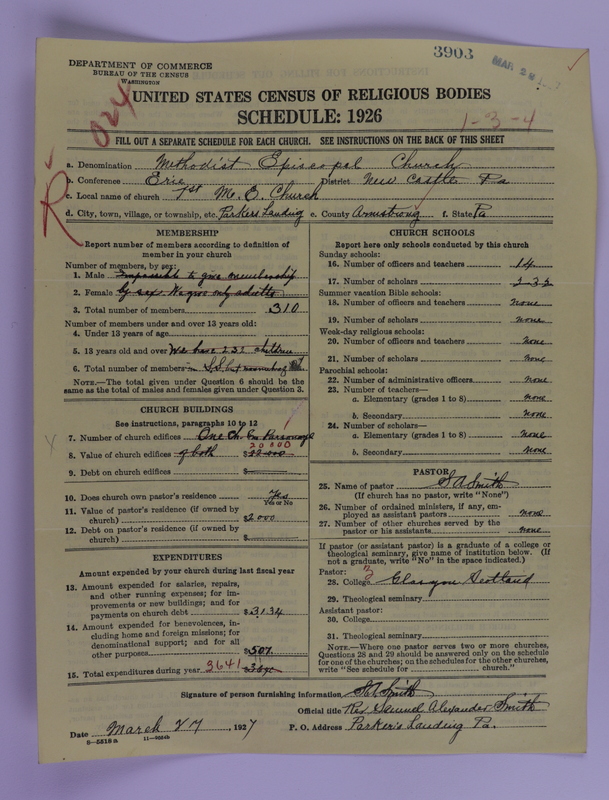 3903
MAR 28
DEPARTMENT OF COMMERCE
BUREAU OF THE CENSUS
WASHINGTON
024
UNITED STATES CENSUS OF RELIGIOUS BODIES
SCHEDULE: 1926
1-3-4
FILL OUT A SEPARATE SCHEDULE FOR EACH CHURCH. SEE INSTRUCTIONS ON THE BACK OF THIS SHEET
R
a. Denomination Methodist Episcopal Church
b. Conference Erie District New Castle Pa
c. Local name of church 1st M. E. Church
d. City, town, village, or township, etc. Parkers Landing e. County Armstrong f. State Pa
MEMBERSHIP
Report number of members according to definition of
member in your church
Number of members, by sex:
1. Male Impossible to give membership
2. Female by sex.
3. Total number of members 310
Number of members under and over 13 years old:
4. Under 13 years of age
5. 13 years old and over We have 232 children
6. Total number of members in S.S. but
NOTE.—The total given under Question 6 should be the
same as the total of males and females given under Question 3.
CHURCH BUILDINGS
See instructions, paragraphs 10 to 12
7. Number of church edifices One Ch. One Parsonage
20000
8. Value of church edifices of both $22000
9. Debt on church edifices $
10. Does church own pastor's residence Yes
Yes or No
11. Value of pastor's residence (if owned by
church) $2000
12. Debt on pastor's residence (if owned by
church) $
EXPENDITURES
Amount expended by your church during last fiscal year
13. Amount expended for salaries, repairs,
and other running expenses; for im-
provements or new buildings; and for
payments on church debt $3134
14. Amount expended for benevolences, in-
cluding home and foreign missions; for
denominational support; and for all
other purposes $507.
15. Total expenditures during year 3641
CHURCH SCHOOLS
Report here only schools conducted by this church
Sunday schools:
16. Number of officers and teachers 14
17. Number of scholars 232
Summer vacation Bible schools:
18. Number of officers and teachers none
19. Number of scholars none
Week-day religious schools:
20. Number of officers and teachers none
21. Number of scholars none
Parochial schools:
22. Number of administrative officers none
23. Number of teachers—
a. Elementary (grades 1 to 8) none
b. Secondary none
24. Number of scholars—
a. Elementary (grades 1 to 8) none
b. Secondary none
PASTOR
25. Name of pastor S A Smith
(If church has no pastor, write "None")
26. Number of ordained ministers, if any, em-
ployed as assistant pastors none
27. Number of other churches served by the
pastor or his assistants none
If pastor (or assistant pastor) is a graduate of a college or
theological seminary, give name of institution below. (If
not a graduate, write "No" in the space indicated.)
Pastor: 3
28. College Glasgow Scotland
29. Theological seminary
Assistant pastor:
30. College
31. Theological seminary
NOTE.—Where one pastor serves two or more churches,
Questions 28 and 29 should be answered only on the schedule
for one of the churches; on the schedules for the other churches,
write "See schedule for church."
Signature of person furnishing information S A Smith
Official title Rev. Samuel Alexander Smith
Date March 27, 1927 P. O. Address Parker's Landing Pa.
8—5518a